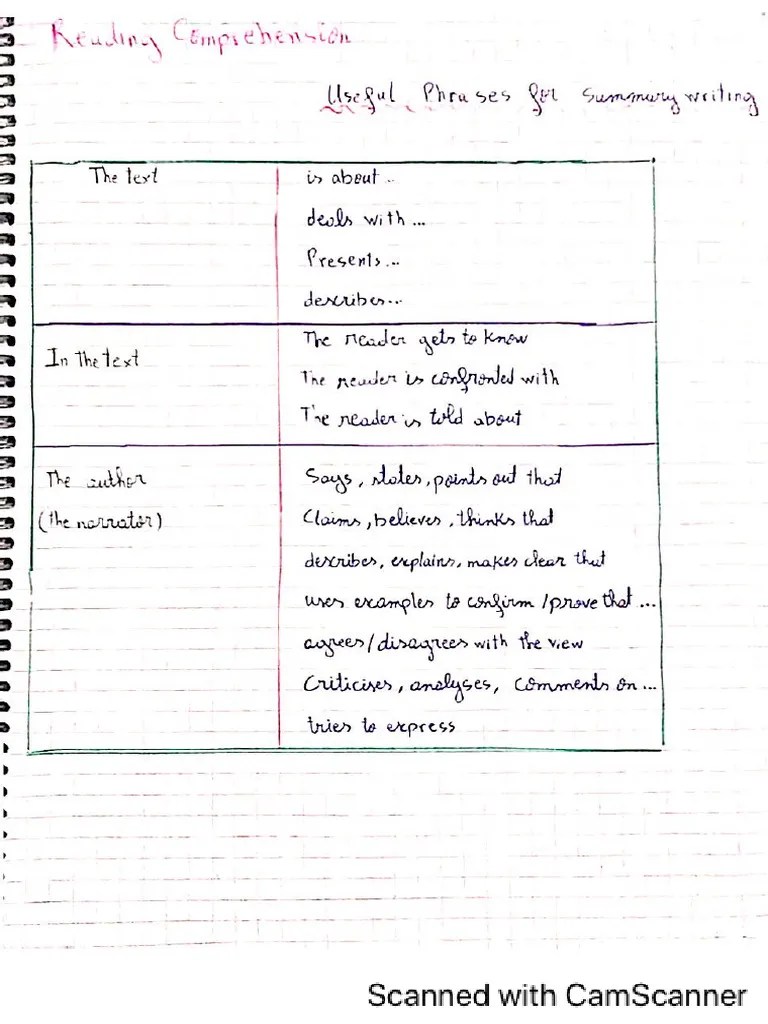 Reading Comprehension
Useful Phrases for summary writing
The text
is about ..
deals with ...
Presents...
describes...
In the text
The reader gets to know
The reader is confronted with
The reader is told about
The author
(the narrator)
Says, states, points out that
Claims, believes, thinks that
describes, explains, makes clear that
uses examples to confirm / prove that ...
agrees/disagrees with the view
Criticises, analyses, comments on ...
tries to express
Scanned with CamScanner